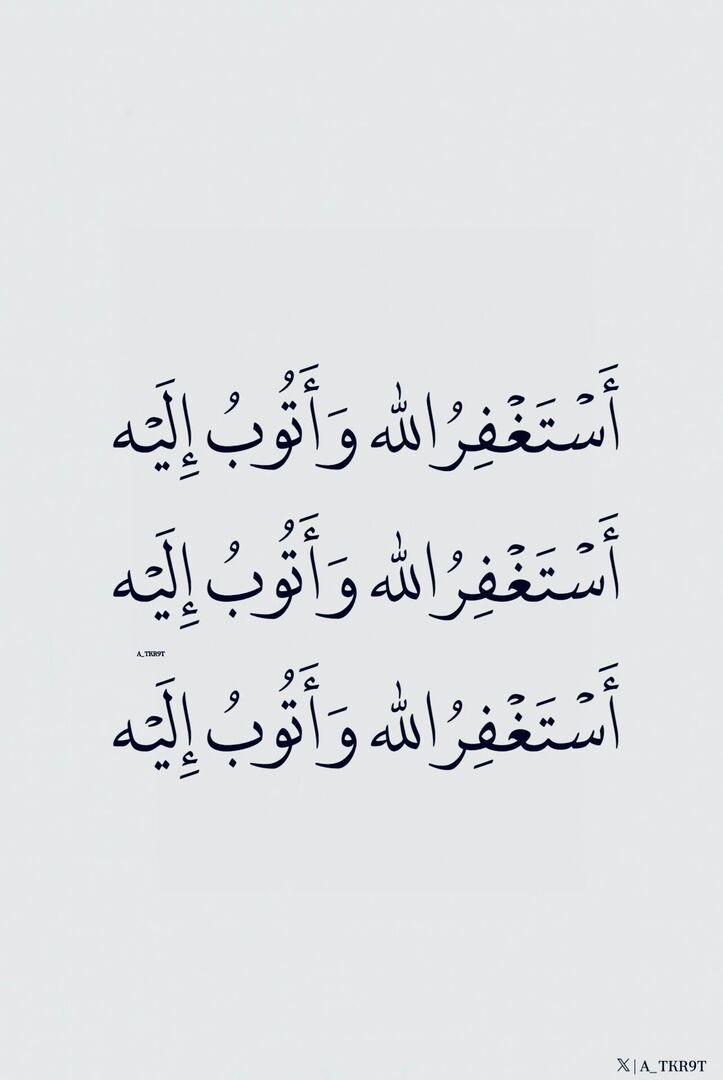 أَسْتَغْفِرُ الله وَأَتُوبُ إِلَيْه
أَسْتَغْفِرُ الله وَأَتُوبُ إِلَيْه
A_TKR9T
أَسْتَغْفِرُ الله وَأَتُوبُ إِلَيْه
𝕏 | A_TKR9T